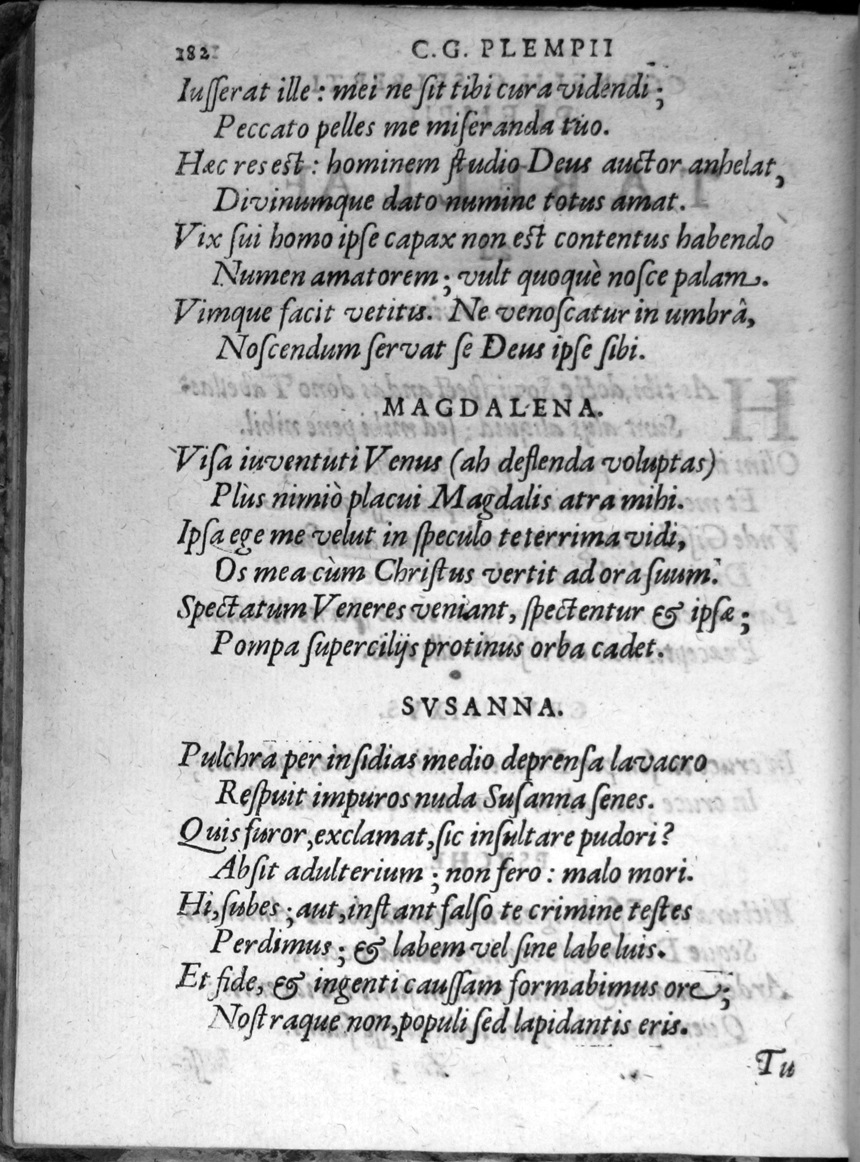 182 C. G. PLEMPII
Iuſſerat ille : mei ne ſit tibi cura videndi ;
Peccato pelles me miſeranda tuo.
Hæc res est : hominem ſtudio Deus auctor anhelat,
Divinumque dato numine totus amat.
Vix ſui homo ipſe capax non est contentus habendo
Numen amatorem ; vult quoquè noſce palam.
Vimque facit vetitis. Ne venoſcatur in umbrâ,
Noſcendum ſervat ſe Deus ipſe ſibi.
MAGDALENA.
Viſa iuventuti Venus (ah deflenda voluptas)
Plùs nimiò placui Magdalis atra mihi.
Ipſa ege me velut in ſpeculo teterrima vidi,
Os mea cùm Chriſtus vertit ad ora ſuum.
Spectatum Veneres veniant, ſpectentur & ipſæ ;
Pompa ſupercilijs protinus orba cadet.
SVSANNA.
Pulchra per inſidias medio deprenſa lavacro
Reſpuit impuros nuda Suſanna ſenes.
Quis furor, exclamat, ſic inſultare pudori ?
Abſit adulterium ; non fero : malo mori.
Hi, ſubes ; aut, inſtant falſo te crimine teſtes
Perdimus ; & labem vel ſine labe luis.
Et fide, & ingenti cauſſam formabimus ore ;
Noſtraque non, populi ſed lapidantis eris.
Tu